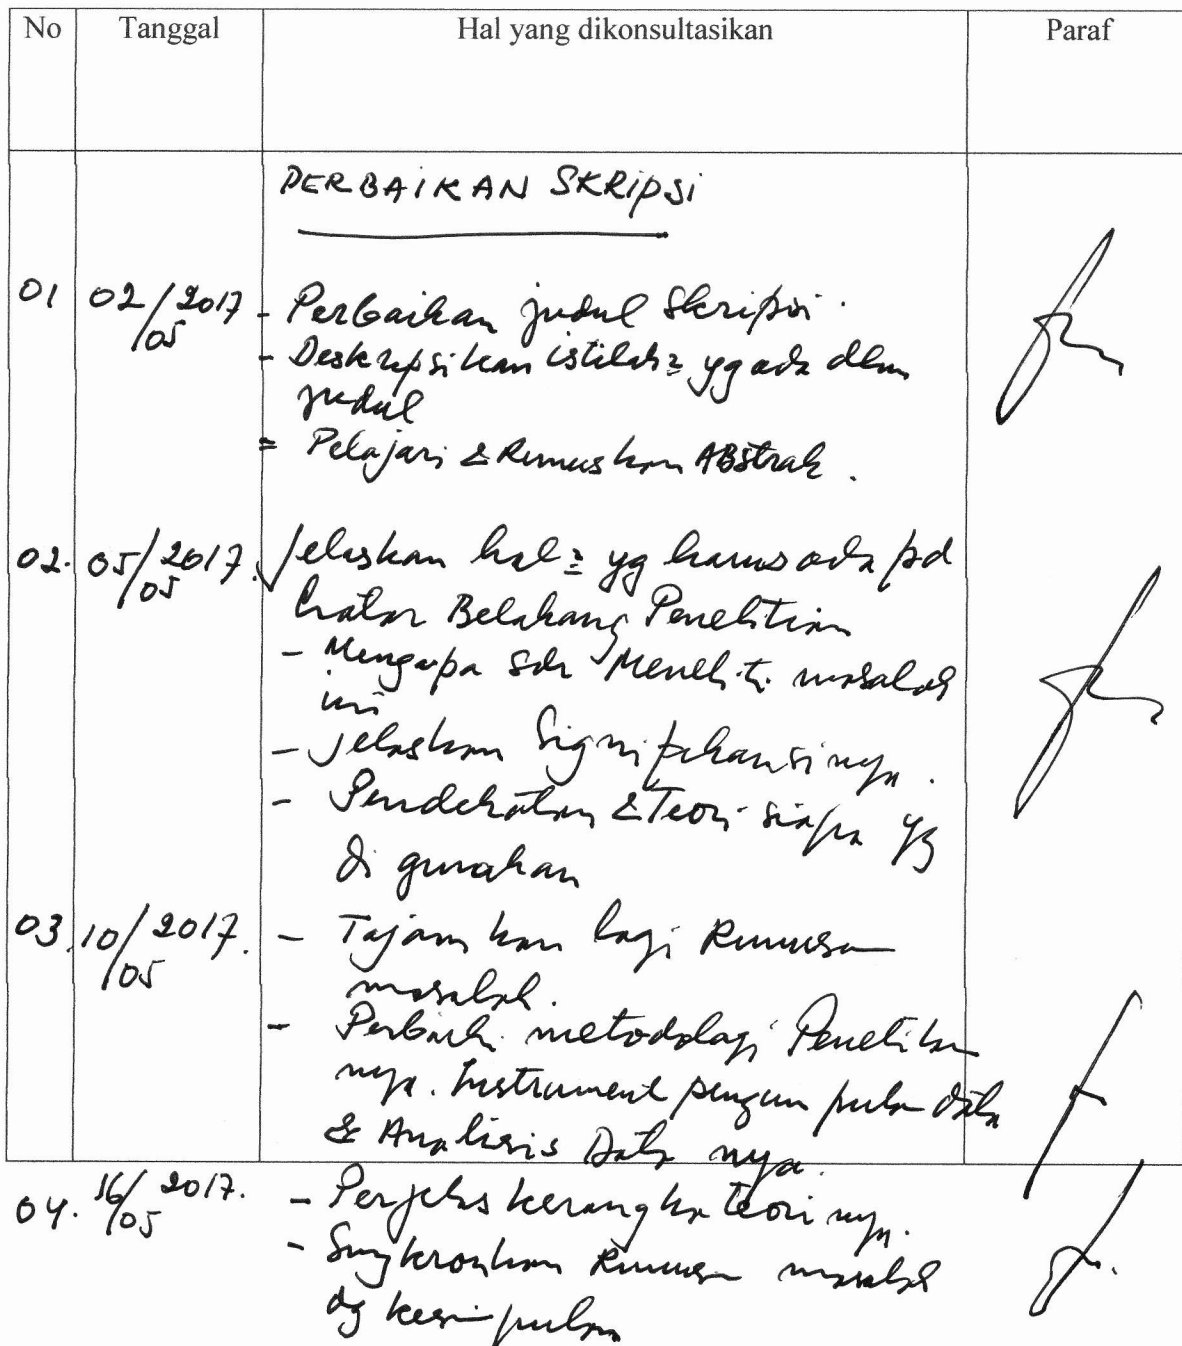 No Tanggal Hal yang dikonsultasikan Paraf
PERBAIKAN SKRIPSI
01 02/05 2017 - Perbaikan judul Skripsi.
- Deskripsikan istilah2 yg ada dlm
judul
= Pelajari & Rumuskan ABstrak.
02. 05/05 2017. Jelaskan hal2 yg harus ada pd
Latar Belakang Penelitian
- Mengapa sdr Meneliti masalah
ini
- Jelaskan Signifikansinya.
- Pendekatan & Teori siapa yg
di gunakan
03. 10/05 2017. - Tajamkan lagi Rumusan
masalah.
- Perbaiki metodologi Penelitian
nya. Instrument pengumpulan data
& Analisis Data nya.
04. 16/05 2017. - Perjelas kerangka teori nya.
- Singkronkan Rumusan masalah
dg kesimpulan